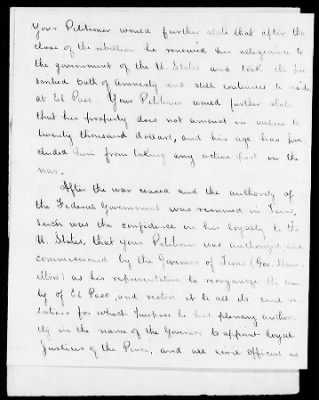 Your Petitioner would further state that after the
close of the rebellion he renewed his allegiance to
the government of the U. States and took the pre
scribed oath of amnesty and still continues to reside
at El Paso. Your Petitioner would further state
that his property does not amount in value to
twenty thousand dollars, and his age has pre
cluded him from taking any active part in the
war.
After the war ceased and the authority of
the Federal Government was resumed in Texas,
such was the confidence in his loyalty to the
U. States, that your Petitioner was authorized and
commissioned by the Governor of Texas (Gov. Ham-
ilton) as his representative to reorganize the coun
ty of El Paso, and restore it to all its civil re-
lations for which purpose he had plenary author-
ity in the name of the Governor to appoint loyal
Justices of the Peace, and all civil officers as